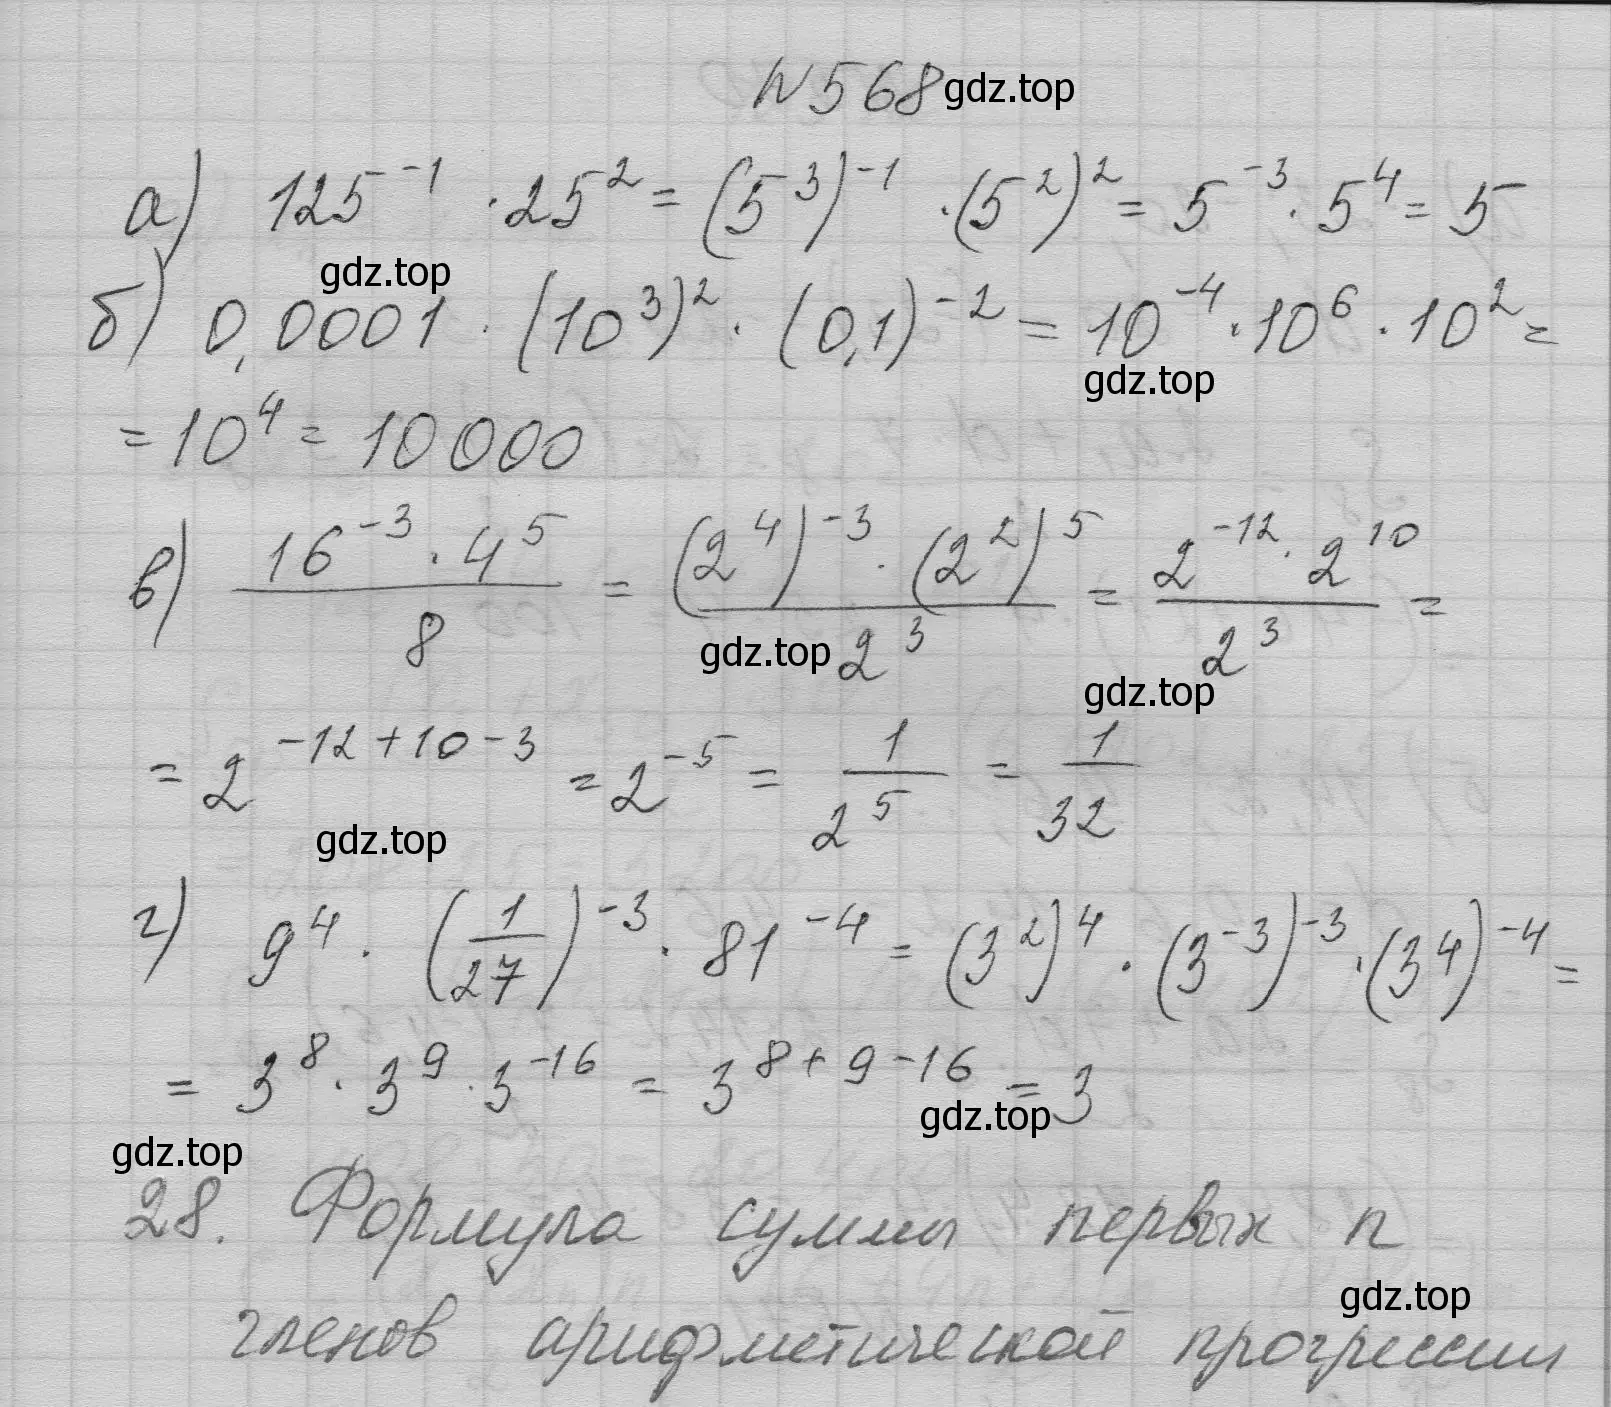 N 568 gdz.top
а) 125⁻¹ · 25² = (5³)⁻¹ · (5²)² = 5⁻³ · 5⁴ = 5
gdz.top
б) 0,0001 · (10³)² · (0,1)⁻² = 10⁻⁴ · 10⁶ · 10² =
gdz.top
= 10⁴ = 10000
в) (16⁻³ · 4⁵)/8 = ((2⁴)⁻³ · (2²)⁵)/2³ = (2⁻¹² · 2¹⁰)/2³ =
gdz.top gdz.top
= 2⁻¹²⁺¹⁰⁻³ = 2⁻⁵ = 1/2⁵ = 1/32
gdz.top
г) 9⁴ · (1/27)⁻³ · 81⁻⁴ = (3²)⁴ · (3⁻³)⁻³ · (3⁴)⁻⁴ =
= 3⁸ · 3⁹ · 3⁻¹⁶ = 3⁸⁺⁹⁻¹⁶ = 3
gdz.top
gdz.top
28. Формула суммы первых n
gdz.top
членов арифметической прогрессии